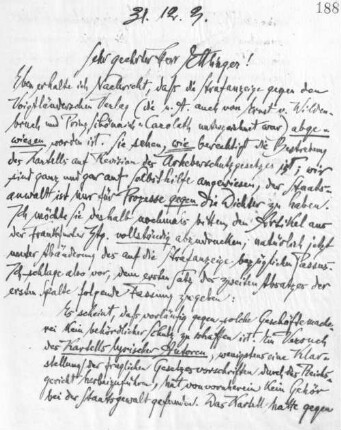 188
31. 12. 9.
Sehr geehrter Herr Ettinger!
Eben erhalte ich Nachricht, daß die Strafanzeige gegen den
Voigtländerschen Verlag (die u. A. auch von Ernst v. Wilden-
bruch und Prinz Schönaich-Carolath unterzeichnet war) abge-
wiesen worden ist. Sie sehen, wie berechtigt die Bestrebung
des Kartells auf Revision des Urheberschutzgesetzes ist; wir
sind ganz und gar auf Selbsthilfe angewiesen, der Staats-
anwalt ist nur für Prozesse gegen die Dichter zu haben.
Ich möchte Sie deshalb nochmals bitten, den Artikel aus
der Frankfurter Ztg. vollständig abzudrucken; natürlich jetzt
unter Abänderung des auf die Strafanzeige bezüglichen Passus.
Ich schlage also vor, dem ersten Satz der zweiten Absatzes der
ersten Spalte folgende Fassung zugeben:
Es scheint, daß vorläufig gegen solche Geschäftemache-
rei kein behördlicher Schutz zu schaffen ist. Ein Versuch
des Kartells lyrischer Autoren, wenigstens eine Klar-
stellung der fraglichen Gesetzesvorschriften durch das Reichs-
gericht herbeizuführen, hat von vornherein kein Gehör
bei der Staatsgewalt gefunden. Das Kartell hatte gegen